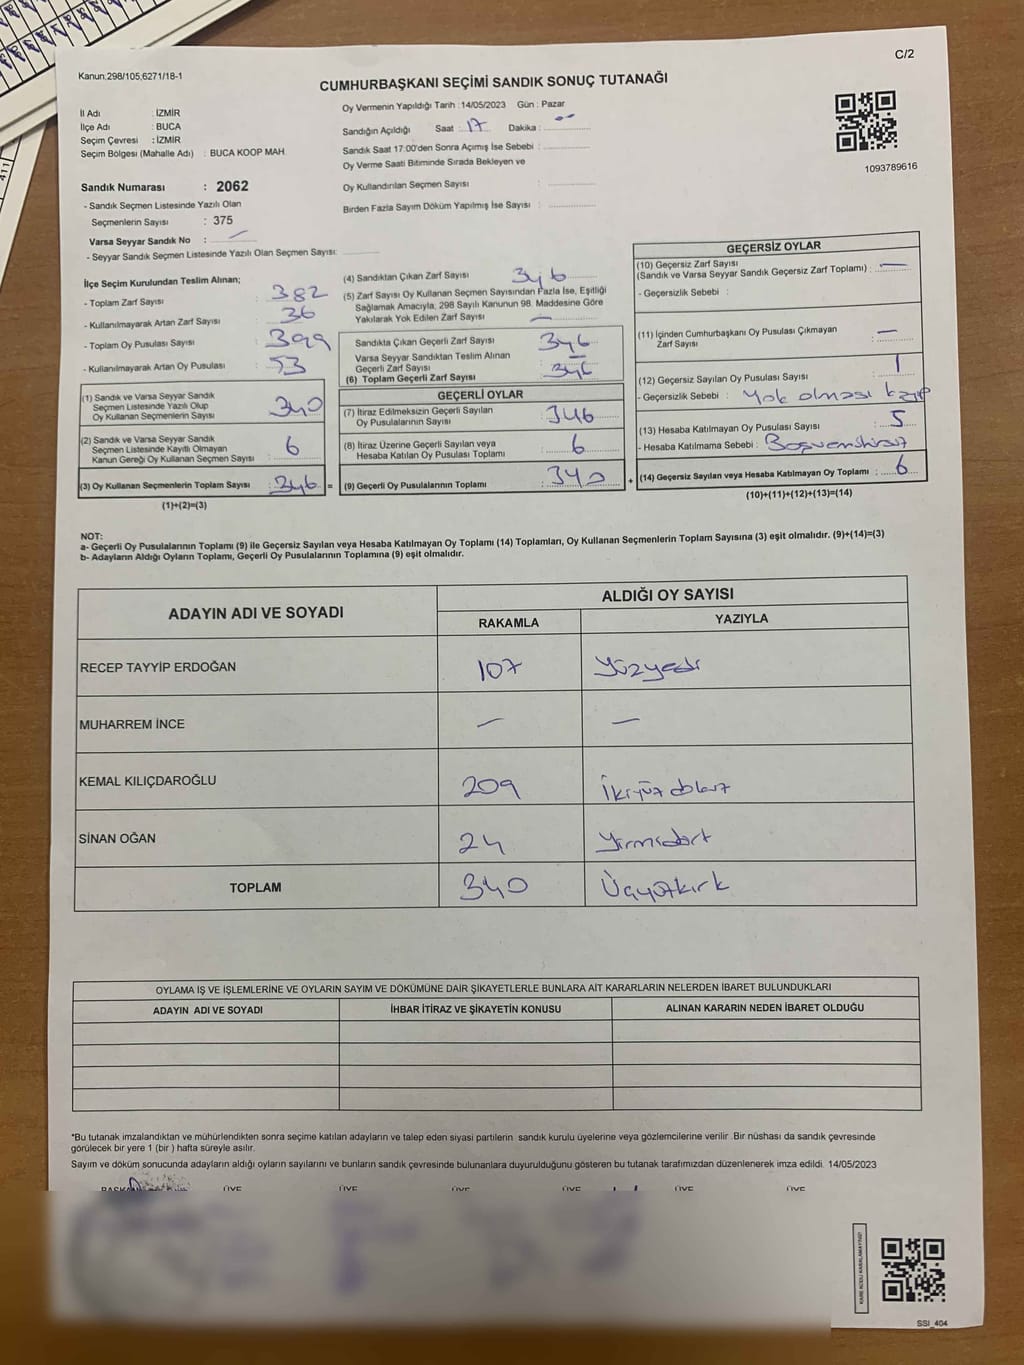 C/2
Kanun:298/105;6271/18-1
CUMHURBAŞKANI SEÇİMİ SANDIK SONUÇ TUTANAĞI
İl Adı : İZMİR
İlçe Adı : BUCA
Seçim Çevresi : İZMİR
Seçim Bölgesi (Mahalle Adı) : BUCA KOOP MAH.
Oy Vermenin Yapıldığı Tarih :14/05/2023 Gün : Pazar
Sandığın Açıldığı Saat : 17 Dakika :
Sandık Saat 17:00'den Sonra Açımış İse Sebebi :
Oy Verme Saati Bitiminde Sırada Bekleyen ve
Oy Kullandırılan Seçmen Sayısı :
Birden Fazla Sayım Döküm Yapılmış İse Sayısı :
1093789616
Sandık Numarası : 2062
- Sandık Seçmen Listesinde Yazılı Olan
Seçmenlerin Sayısı : 375
Varsa Seyyar Sandık No : —
- Seyyar Sandık Seçmen Listesinde Yazılı Olan Seçmen Sayısı:
İlçe Seçim Kurulundan Teslim Alınan;
- Toplam Zarf Sayısı : 382
- Kullanılmayarak Artan Zarf Sayısı : 36
- Toplam Oy Pusulası Sayısı : 399
- Kullanılmayarak Artan Oy Pusulası : 53
(1) Sandık ve Varsa Seyyar Sandık
Seçmen Listesinde Yazılı Olup
Oy Kullanan Seçmenlerin Sayısı : 340
(2) Sandık ve Varsa Seyyar Sandık
Seçmen Listesinde Kayıtlı Olmayan
Kanun Gereği Oy Kullanan Seçmen Sayısı : 6
(3) Oy Kullanan Seçmenlerin Toplam Sayısı : 346 =
(1)+(2)=(3)
(4) Sandıktan Çıkan Zarf Sayısı 346
(5) Zarf Sayısı Oy Kullanan Seçmen Sayısından Fazla İse, Eşitliği
Sağlamak Amacıyla, 298 Sayılı Kanunun 98. Maddesine Göre
Yakılarak Yok Edilen Zarf Sayısı : —
Sandıkta Çıkan Geçerli Zarf Sayısı : 346
Varsa Seyyar Sandıktan Teslim Alınan
Geçerli Zarf Sayısı : —
(6) Toplam Geçerli Zarf Sayısı 346
GEÇERLİ OYLAR
(7) İtiraz Edilmeksizin Geçerli Sayılan
Oy Pusulalarının Sayısı : 346
(8) İtiraz Üzerine Geçerli Sayılan veya
Hesaba Katılan Oy Pusulası Toplamı : 6
(9) Geçerli Oy Pusulalarının Toplamı : 340 +
GEÇERSİZ OYLAR
(10) Geçersiz Zarf Sayısı
(Sandık ve Varsa Seyyar Sandık Geçersiz Zarf Toplamı) : —
- Geçersizlik Sebebi :
(11) İçinden Cumhurbaşkanı Oy Pusulası Çıkmayan
Zarf Sayısı : —
(12) Geçersiz Sayılan Oy Pusulası Sayısı : 1
- Geçersizlik Sebebi : Yok olması
(13) Hesaba Katılmayan Oy Pusulası Sayısı : 5
- Hesaba Katılmama Sebebi :
(14) Geçersiz Sayılan veya Hesaba Katılmayan Oy Toplamı : 6
(10)+(11)+(12)+(13)=(14)
NOT:
a- Geçerli Oy Pusulalarının Toplamı (9) ile Geçersiz Sayılan veya Hesaba Katılmayan Oy Toplamı (14) Toplamları, Oy Kullanan Seçmenlerin Toplam Sayısına (3) eşit olmalıdır. (9)+(14)=(3)
b- Adayların Aldığı Oyların Toplamı, Geçerli Oy Pusulalarının Toplamına (9) eşit olmalıdır.
ADAYIN ADI VE SOYADI
ALDIĞI OY SAYISI
RAKAMLA YAZIYLA
RECEP TAYYİP ERDOĞAN 107 Yüzyedi
MUHARREM İNCE — —
KEMAL KILIÇDAROĞLU 209 İkiyüz dokuz
SİNAN OĞAN 24 Yirmidört
TOPLAM 340 Üçyüzkırk
OYLAMA İŞ VE İŞLEMLERİNE VE OYLARIN SAYIM VE DÖKÜMÜNE DAİR ŞİKAYETLERLE BUNLARA AİT KARARLARIN NELERDEN İBARET BULUNDUKLARI
ADAYIN ADI VE SOYADI İHBAR İTİRAZ VE ŞİKAYETİN KONUSU ALINAN KARARIN NEDEN İBARET OLDUĞU
*Bu tutanak imzalandıktan ve mühürlendikten sonra seçime katılan adayların ve talep eden siyasi partilerin sandık kurulu üyelerine veya gözlemcilerine verilir .Bir nüshası da sandık çevresinde
görülecek bir yere 1 (bir ) hafta süreyle asılır.
Sayım ve döküm sonucunda adayların aldığı oyların sayılarını ve bunların sandık çevresinde bulunanlara duyurulduğunu gösteren bu tutanak tarafımızdan düzenlenerek imza edildi. 14/05/2023
BAŞKAN ÜYE ÜYE ÜYE ÜYE ÜYE ÜYE
KARE KODU KARALAMAYINIZ!
SSI_404